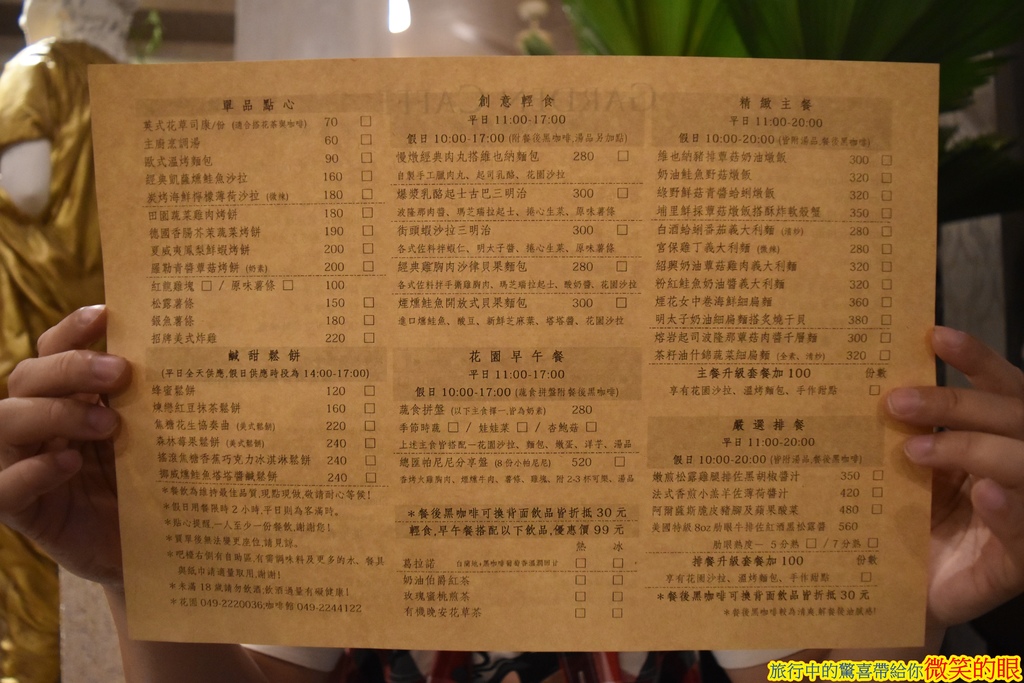 單品點心
英式花草司康/份 (適合搭花茶與咖啡) 70 □
主廚烹調湯 60 □
歐式溫烤麵包 90 □
經典凱薩燻鮭魚沙拉 160 □
炭烤海鮮檸檬薄荷沙拉 (微辣) 180 □
田園蔬菜雞肉烤餅 180 □
德國香腸芥茉蔬菜烤餅 190 □
夏威夷鳳梨鮮蝦烤餅 200 □
羅勒青醬蕈菇烤餅 (奶素) 200 □
紅龍雞塊 □ / 原味薯條 □ 100
松露薯條 150 □
銀魚薯條 180 □
招牌美式炸雞 220 □
鹹甜鬆餅
(平日全天供應,假日供應時段為 14:00-17:00)
蜂蜜鬆餅 120 □
煉戀紅豆抹茶鬆餅 160 □
焦糖花生協奏曲 (美式鬆餅) 220 □
森林莓果鬆餅 (美式鬆餅) 240 □
搖滾焦糖香蕉巧克力冰淇淋鬆餅 240 □
挪威燻鮭魚塔塔醬鹹鬆餅 240 □
*餐飲為維持最佳品質,現點現做,敬請耐心等候!
*假日用餐限時 2 小時,平日則為客滿時。
*貼心提醒,一人至少一份餐飲,謝謝您!
*買單後無法變更座位,請見諒。
*吧檯右側有自助區,有需調味料及更多的水、餐具
與紙巾請適量取用,謝謝!
*未滿 18 歲請勿飲酒;飲酒過量有礙健康!
*花園 049-2220036;咖啡館 049-2244122
創意輕食
平日 11:00-17:00
假日 10:00-17:00 (附餐後黑咖啡,湯品另加點)
慢燉經典肉丸搭維也納麵包 280 □
自製手工臘肉丸、起司乳酪、花園沙拉
爆漿乳酪起士古巴三明治 300 □
波隆那肉醬、瑪芝瑞拉起士、捲心生菜、原味薯條
街頭蝦沙拉三明治 300 □
各式佐料拌蝦仁、明太子醬、捲心生菜、原味薯條
經典雞胸肉沙律貝果麵包 280 □
各式佐料拌手撕雞胸肉、瑪芝瑞拉起士、酸奶醬、花園沙拉
煙燻鮭魚開放式貝果麵包 300 □
進口燻鮭魚、酸豆、新鮮芝麻葉、塔塔醬、花園沙拉
花園早午餐
平日 11:00-17:00
假日 10:00-17:00 (蔬食拼盤附餐後黑咖啡)
蔬食拼盤 (以下主食擇一,皆為奶素) 280
季節時蔬 □ / 娃娃菜 □ / 杏鮑菇 □
上述主食皆搭配一花園沙拉、麵包、燉蛋、洋芋、湯品
總匯帕尼尼分享盤 (8份小帕尼尼) 520 □
香烤火雞胸肉、煙燻牛肉、薯條、雞塊, 附 2-3 杯可樂、湯品
*餐後黑咖啡可換背面飲品皆折抵 30 元
輕食,早午餐搭配以下飲品,優惠價 99 元
熱 冰
葛拉諾 □ □
奶油伯爵紅茶 □ □
玫瑰蜜桃煎茶 □ □
有機晚安花草茶 □ □
精緻主餐
平日 11:00-20:00
假日 10:00-20:00 (皆附湯品,餐後黑咖啡)
維也納豬排蕈菇奶油燉飯 300 □
奶油鮭魚野菇燉飯 320 □
綠野鮮菇青醬蛤蜊燉飯 320 □
埔里鮮採蕈菇燉飯搭酥炸軟殼蟹 350 □
白酒蛤蜊番茄義大利麵 (清炒) 320 □
宮保雞丁義大利麵 (微辣) 280 □
紹興奶油蕈菇雞肉義大利麵 320 □
粉紅鮭魚奶油醬義大利麵 320 □
煙花女中卷海鮮細扁麵 360 □
明太子奶油細扁麵搭炙燒干貝 380 □
熔岩起司波隆那蕈菇肉醬千層麵 300 □
茶籽油什錦蔬菜細扁麵 (全素、清炒) 320 □
主餐升級套餐加 100 份數
享有花園沙拉、溫烤麵包、手作甜點 □
嚴選排餐
平日 11:00-20:00
假日 10:00-20:00 (皆附湯品,餐後黑咖啡)
嫩煎松露雞腿排佐黑胡椒醬汁 350 □
法式香煎小羔羊佐薄荷醬汁 420 □
阿爾薩斯脆皮豬腳及蘋果酸菜 480 □
美國特級 8oz 肋眼牛排佐紅酒黑松露醬 560
肋眼熟度— 5 分熟 □ / 7 分熟 □
排餐升級套餐加 100 份數
享有花園沙拉、溫烤麵包、手作甜點 □
*餐後黑咖啡可換背面飲品皆折抵 30 元
*餐後黑咖啡較為清爽,解餐後油膩感!
旅行中的驚喜帶給你微笑的眼